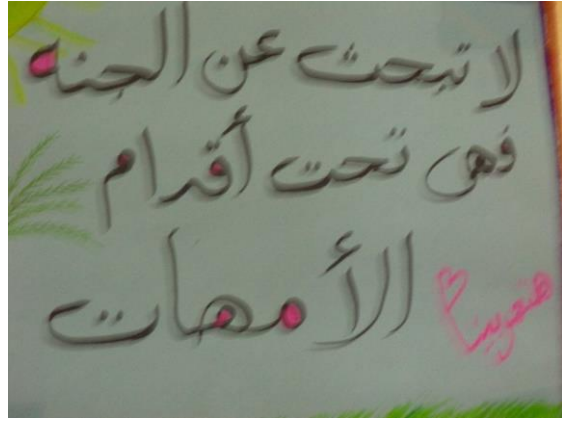 لا تبحث عن الجنه
فهى تحت أقدام
الأمهات